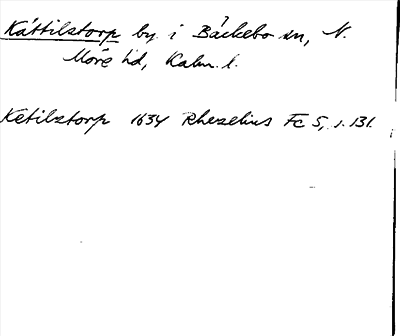 Kättilstorp by i Bäckebo sn, N.
Möre hd, Kalm. l.
Ketilstorp 1634 Rhezelius Fc 5, s. 131.